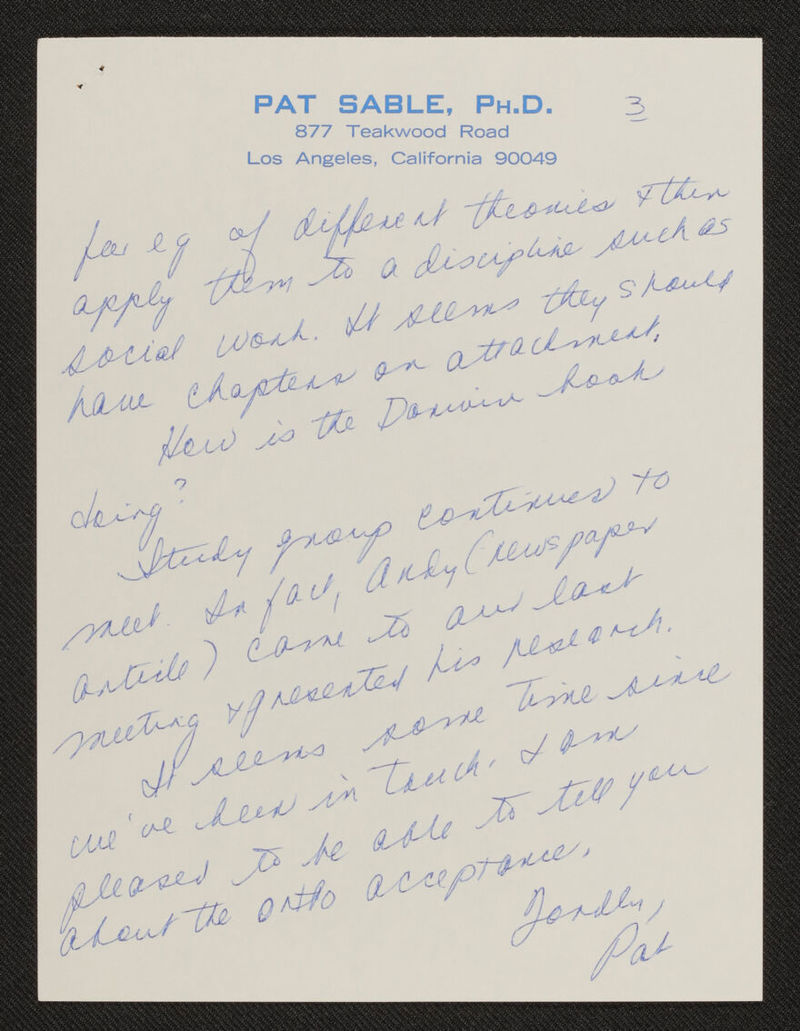 PAT SABLE, PH.D.
3
877 Teakwood Road
Los Angeles, California 90049
for eg of different theories & then
apply them to a discipline such as
social work. It seems they should
have chapters on attachment.
How is the Darwin book
doing?
Study group continues to
meet. In fact, Andy (newspaper
article) came to our last
meeting & presented his research.
It seems some time since
we've been in touch. I am
pleased to be able to tell you
about the ortho acceptance.
Fondly,
Pat